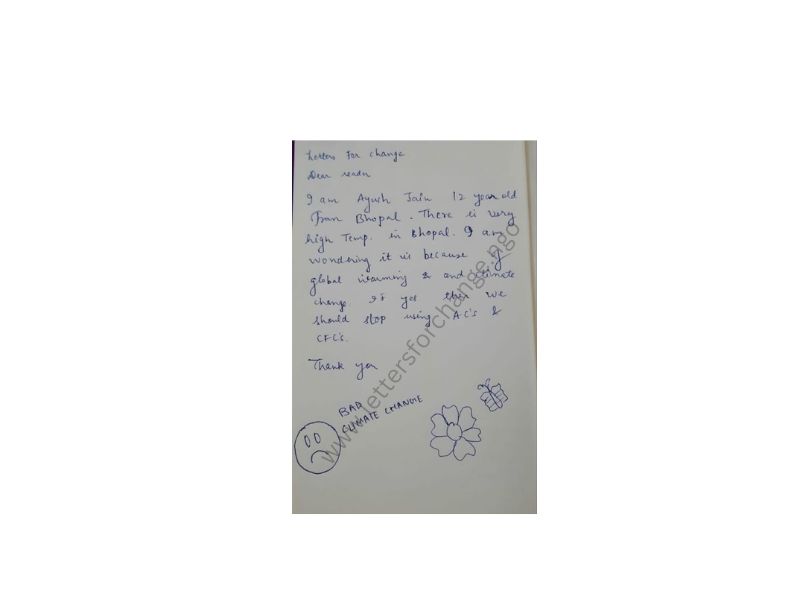 Letters For change
Dear reader
I am Ayush Jain 12 year old
from Bhopal. There is very
high Temp. in Bhopal. I am
wondering it is because of
global warming & and climate
change If yes then we
should stop using AC's &
CFC's.
Thank you
BAD
CLIMATE CHANGE
www.lettersforchange.ngo